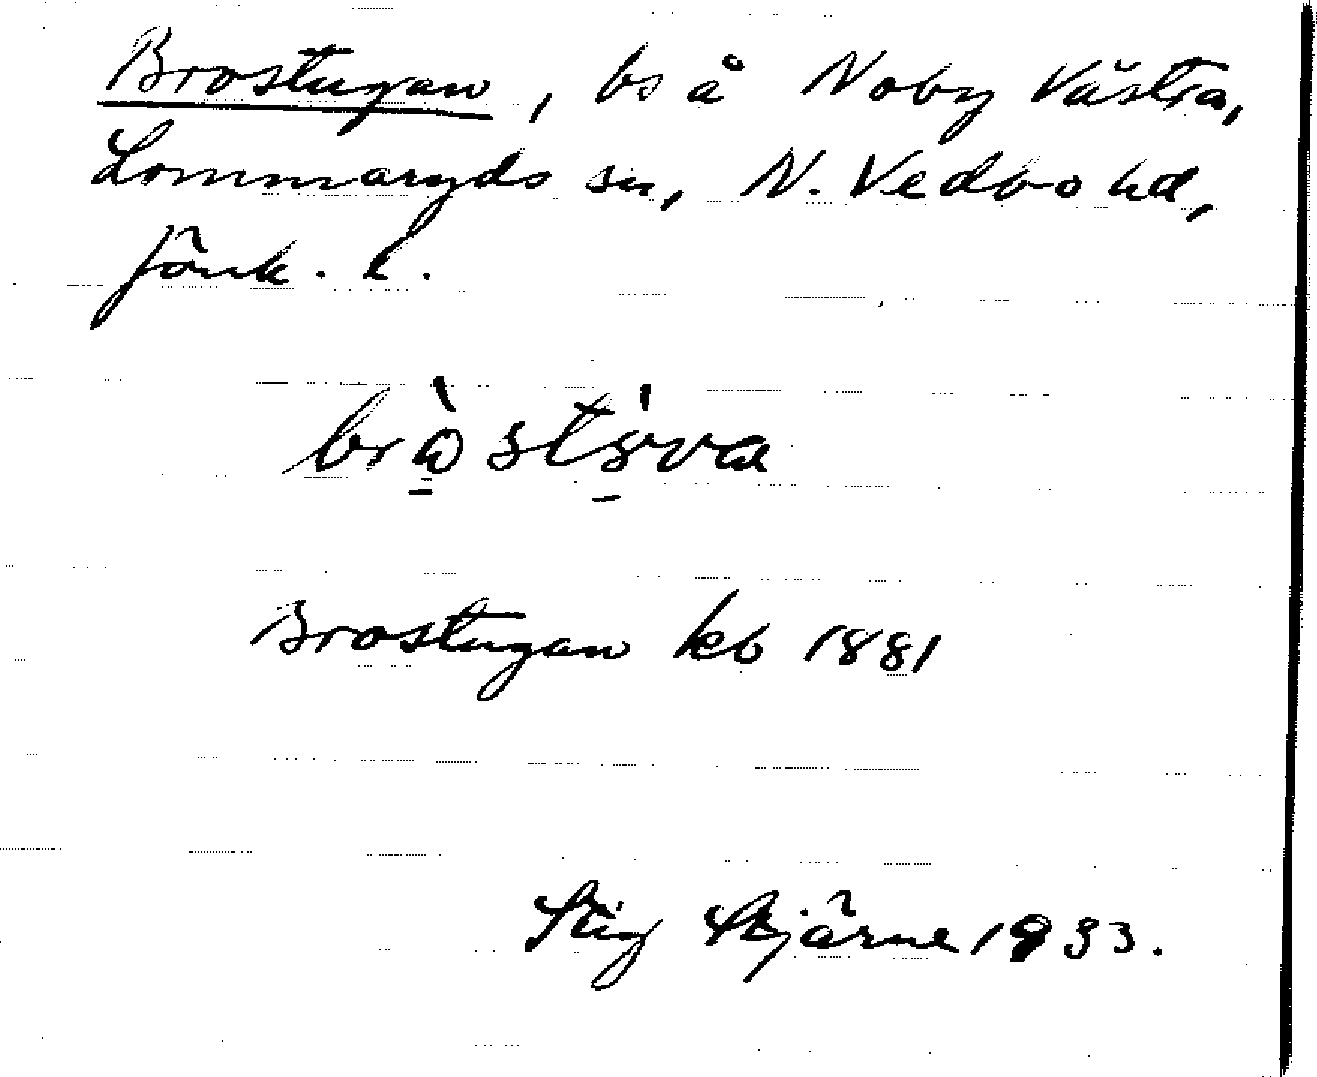 Brostugan, bs å Noby Västra,
Lommaryds sn, N. Vedbo hd,
Jönk. l.
Brostugan kb 1881
Stig Stjärne 1933.